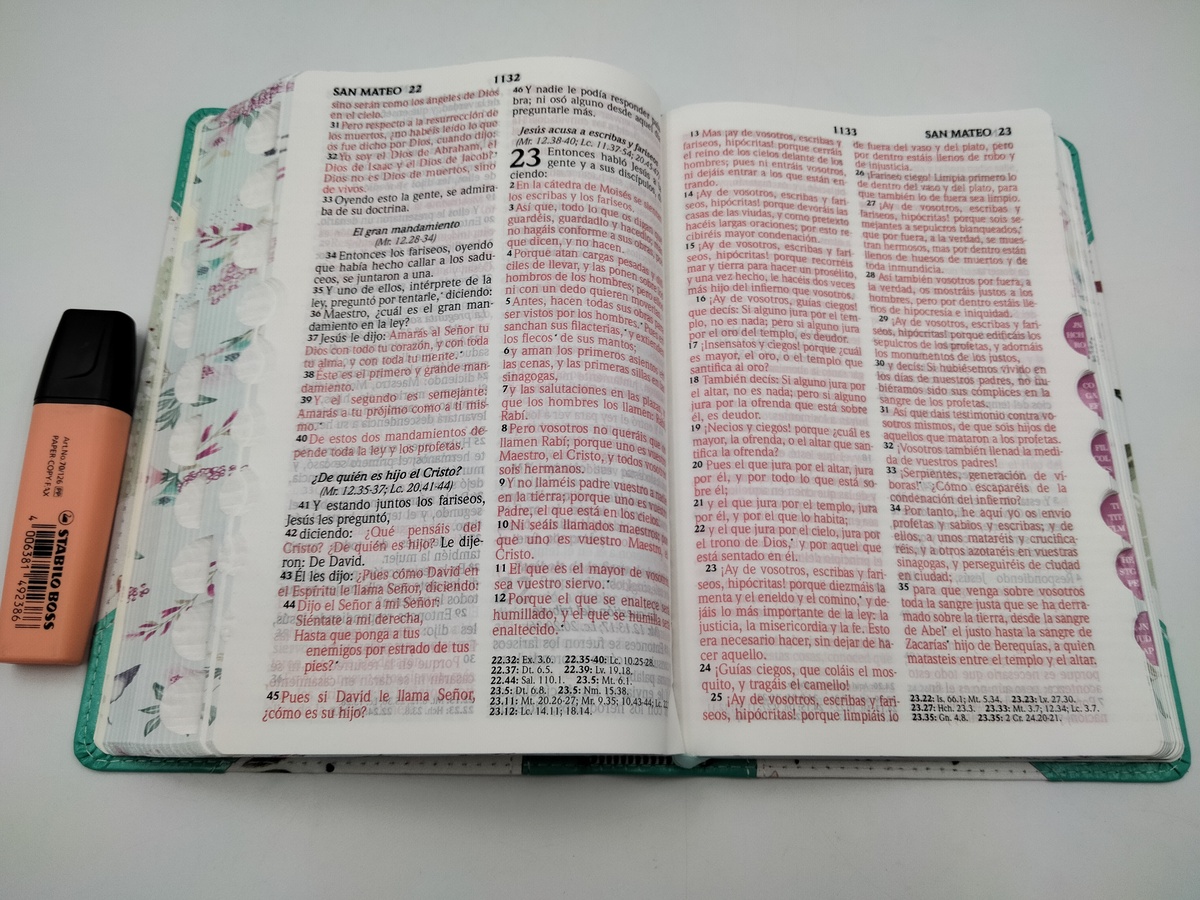 SAN MATEO 22
1132
sino serán como los ángeles de Dios
en el cielo.
31 Pero respecto a la resurrección de
los muertos, ¿no habéis leído lo que
os fue dicho por Dios, cuando dijo:
32 Yo soy el Dios de Abraham, el
Dios de Isaac y el Dios de Jacob?
Dios no es Dios de muertos, sino
de vivos.
33 Oyendo esto la gente, se admira-
ba de su doctrina.
El gran mandamiento
(Mr. 12.28-34)
34 Entonces los fariseos, oyendo
que había hecho callar a los sadu-
ceos, se juntaron a una.
35 Y uno de ellos, intérprete de la
ley, preguntó por tentarle, diciendo:
36 Maestro, ¿cuál es el gran man-
damiento en la ley?
37 Jesús le dijo: Amarás al Señor tu
Dios con todo tu corazón, y con toda
tu alma, y con toda tu mente.
38 Este es el primero y grande man-
damiento.
39 Y el segundo es semejante:
Amarás a tu prójimo como a ti mis-
mo.
40 De estos dos mandamientos de-
pende toda la ley y los profetas.
¿De quién es hijo el Cristo?
(Mr. 12.35-37; Lc. 20.41-44)
41 Y estando juntos los fariseos,
Jesús les preguntó,
42 diciendo: ¿Qué pensáis del
Cristo? ¿De quién es hijo? Le dije-
ron: De David.
43 Él les dijo: ¿Pues cómo David en
el Espíritu le llama Señor, diciendo:
44 Dijo el Señor a mi Señor:
Siéntate a mi derecha,
Hasta que ponga a tus
enemigos por estrado de tus
pies?
45 Pues si David le llama Señor,
¿cómo es su hijo?
46 Y nadie le podía responder
bra; ni osó alguno desde aquel
preguntarle más.
Jesús acusa a escribas y fariseos
(Mr. 12.38-40; Lc. 11.37-54; 20.45-
23 Entonces habló Jesús a
gente y a sus discípulos,
ciendo:
2 En la cátedra de Moisés se
los escribas y los fariseos.
3 Así que, todo lo que os digan
guardéis, guardadlo y hacedlo;
no hagáis conforme a sus obras,
que dicen, y no hacen.
4 Porque atan cargas pesadas y
ciles de llevar, y las ponen sobre
hombros de los hombres; pero
ni con un dedo quieren moverlas.
5 Antes, hacen todas sus obras
ser vistos por los hombres. Pues
sanchan sus filacterias, y
los flecos de sus mantos;
6 y aman los primeros asientos
las cenas, y las primeras sillas en
sinagogas,
7 y las salutaciones en las plazas,
que los hombres los llamen
Rabí.
8 Pero vosotros no queráis que
llamen Rabí; porque uno es
Maestro, el Cristo, y todos vosotros
sois hermanos.
9 Y no llaméis padre vuestro a nadie
en la tierra; porque uno es vuestro
Padre, el que está en los cielos.
10 Ni seáis llamados maestros; por-
que uno es vuestro Maestro, el
Cristo.
11 El que es el mayor de vosotros,
sea vuestro siervo.
12 Porque el que se enaltece será
humillado, y el que se humilla será
enaltecido.
22.32: Ex. 3.6. 22.35-40: Lc. 10.25-28.
22.37: Dt. 6.5. 22.39: Lv. 19.18.
22.44: Sal. 110.1. 23.5: Mt. 6.1.
23.5: Dt. 6.8. 23.5: Nm. 15.38.
23.11: Mt. 20.26-27; Mr. 9.35; 10.43-44; Lc. 22
23.12: Lc. 14.11; 18.14.
1133
SAN MATEO 23
13 Mas ¡ay de vosotros, escribas y
fariseos, hipócritas! porque cerráis
el reino de los cielos delante de los
hombres; pues ni entráis vosotros,
ni dejáis entrar a los que están en-
trando.
14 ¡Ay de vosotros, escribas y fari-
seos, hipócritas! porque devoráis las
casas de las viudas, y como pretexto
hacéis largas oraciones; por esto re-
cibiréis mayor condenación.
15 ¡Ay de vosotros, escribas y fari-
seos, hipócritas! porque recorréis
mar y tierra para hacer un prosélito,
y una vez hecho, le hacéis dos veces
más hijo del infierno que vosotros.
16 ¡Ay de vosotros, guías ciegos!
que decís: Si alguno jura por el tem-
plo, no es nada; pero si alguno jura
por el oro del templo, es deudor.
17 ¡Insensatos y ciegos! porque ¿cuál
es mayor, el oro, o el templo que
santifica al oro?
18 También decís: Si alguno jura por
el altar, no es nada; pero si alguno
jura por la ofrenda que está sobre
él, es deudor.
19 ¡Necios y ciegos! porque ¿cuál es
mayor, la ofrenda, o el altar que san-
tifica la ofrenda?
20 Pues el que jura por el altar, jura
por él, y por todo lo que está so-
bre él;
21 y el que jura por el templo, jura
por él, y por el que lo habita;
22 y el que jura por el cielo, jura por
el trono de Dios, y por aquel que
está sentado en él.
23 ¡Ay de vosotros, escribas y fari-
seos, hipócritas! porque diezmáis la
menta y el eneldo y el comino, y de-
jáis lo más importante de la ley: la
justicia, la misericordia y la fe. Esto
era necesario hacer, sin dejar de ha-
cer aquello.
24 ¡Guías ciegos, que coláis el mos-
quito, y tragáis el camello!
25 ¡Ay de vosotros, escribas y fari-
seos, hipócritas! porque limpiáis lo
de fuera del vaso y del plato, pero
por dentro estáis llenos de robo y
de injusticia.
26 ¡Fariseo ciego! Limpia primero lo
de dentro del vaso y del plato, para
que también lo de fuera sea limpio.
27 ¡Ay de vosotros, escribas y
fariseos, hipócritas! porque sois se-
mejantes a sepulcros blanqueados,
que por fuera, a la verdad, se mues-
tran hermosos, mas por dentro están
llenos de huesos de muertos y de
toda inmundicia.
28 Así también vosotros por fuera, a
la verdad, os mostráis justos a los
hombres, pero por dentro estáis lle-
nos de hipocresía e iniquidad.
29 ¡Ay de vosotros, escribas y fari-
seos, hipócritas! porque edificáis los
sepulcros de los profetas, y adornáis
los monumentos de los justos,
30 y decís: Si hubiésemos vivido en
los días de nuestros padres, no hu-
biéramos sido sus cómplices en la
sangre de los profetas.
31 Así que dais testimonio contra vo-
sotros mismos, de que sois hijos de
aquellos que mataron a los profetas.
32 ¡Vosotros también llenad la medi-
da de vuestros padres!
33 ¡Serpientes, generación de ví-
boras! ¿Cómo escaparéis de la
condenación del infierno?
34 Por tanto, he aquí yo os envío
profetas y sabios y escribas; y de
ellos, a unos mataréis y crucifica-
réis, y a otros azotaréis en vuestras
sinagogas, y perseguiréis de ciudad
en ciudad;
35 para que venga sobre vosotros
toda la sangre justa que se ha derra-
mado sobre la tierra, desde la sangre
de Abel el justo hasta la sangre de
Zacarías hijo de Berequías, a quien
matasteis entre el templo y el altar.
23.22: Is. 66.1; Mt. 5.34. 23.23: Lv. 27.30.
23.27: Hch. 23.3. 23.33: Mt. 3.7; 12.34; Lc. 3.7.
23.35: Gn. 4.8. 23.35: 2 Cr. 24.20-21.
STABILO BOSS
Art.No. 70/126
PAPER-COPY-FAX
4 006381 492386